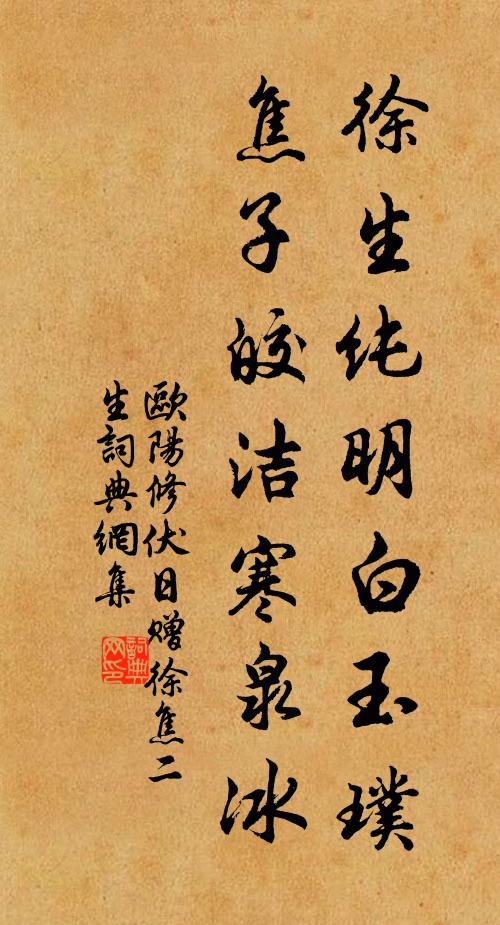 徐生纯明白玉璞
焦子皎洁寒泉冰
歐陽修伏日赠徐焦二
生詞典網集
詞典网印